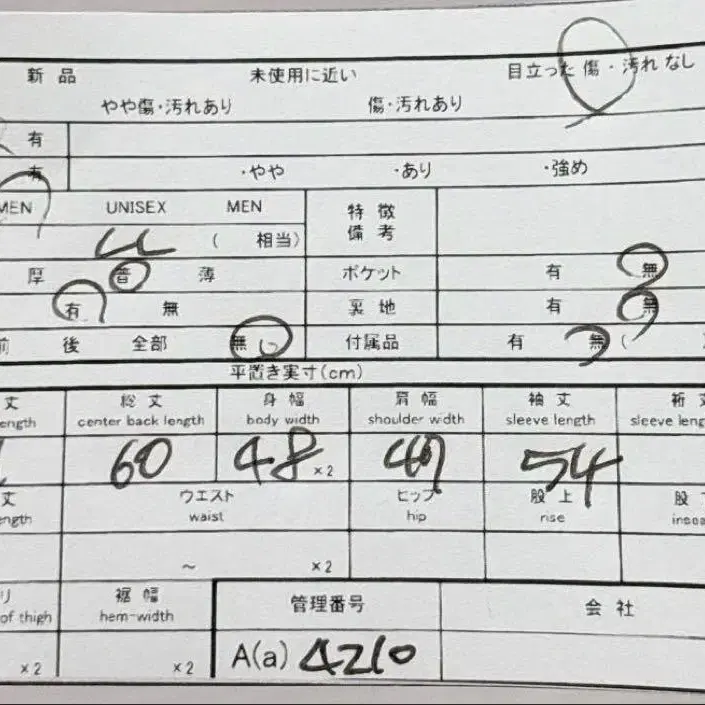 新品 未使用に近い 目立った傷・汚れなし
やや傷・汚れあり 傷・汚れあり
有
有 ・やや ・あり ・強め
MEN UNISEX MEN 特徴
備考
LL ( 相当)
厚 普 薄 ポケット 有 無
有 無 裏地 有 無
前 後 全部 無 付属品 有 無 (
平置き実寸(cm)
丈 総丈 身幅 肩幅 袖丈 裄
ength center back length body width shoulder width sleeve length sleeve leng
60 48 ×2 54
丈 ウエスト ヒップ 股上 股
ength waist hip rise insea
~ ×2
り 裾幅 管理番号 会社
of thigh hem-width
×2 ×2 A(a) 4210